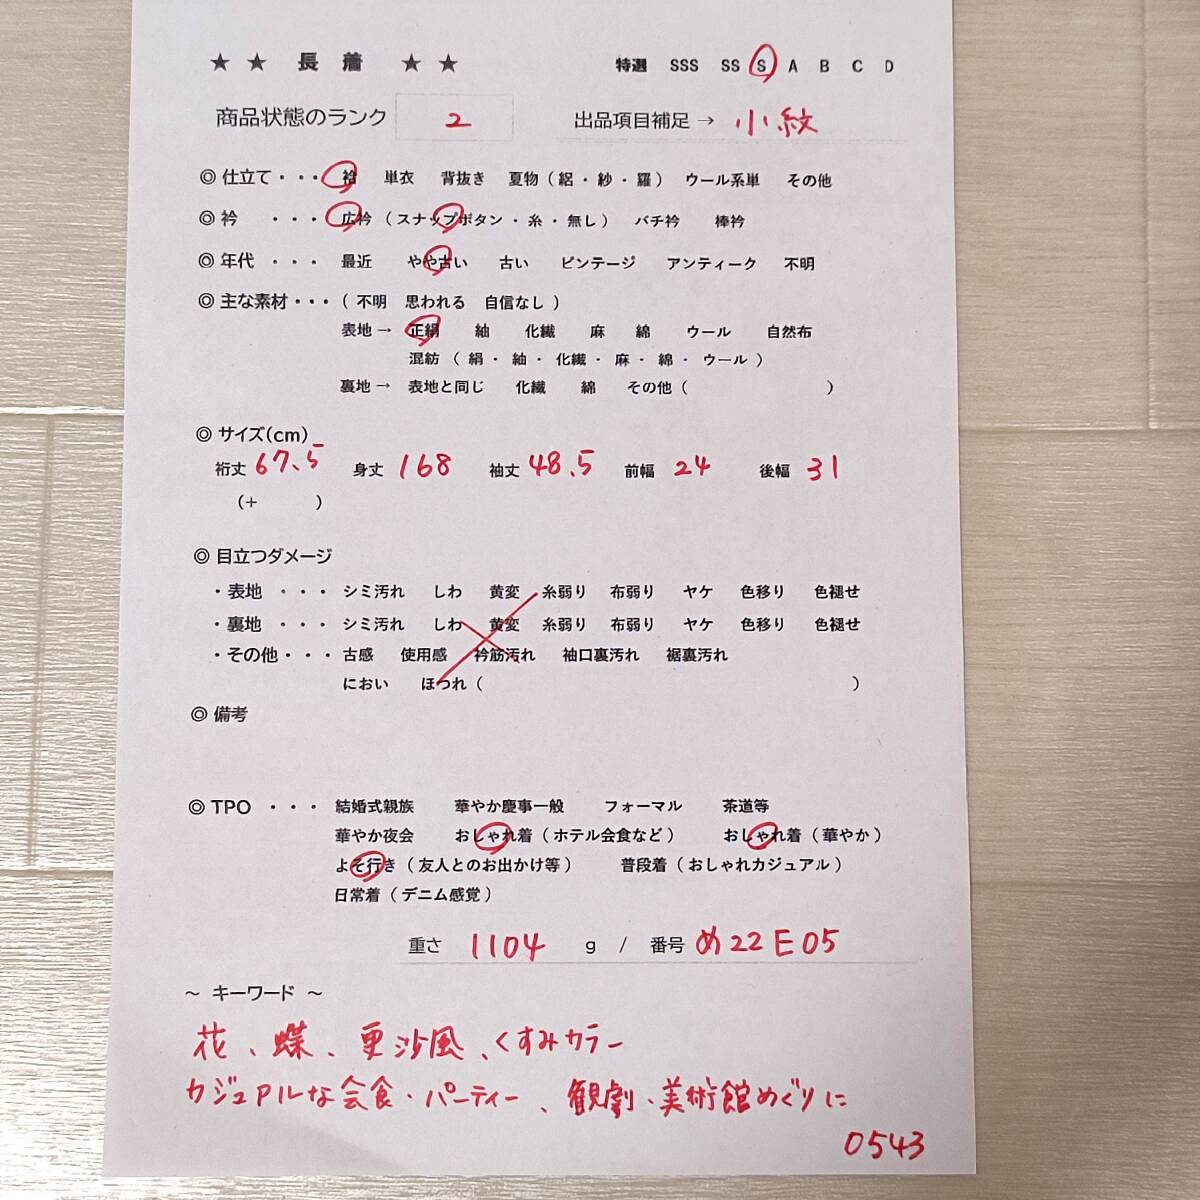 ★ ★ 長 着 ★ ★ 特選 SSS SS S A B C D
商品状態のランク 2 出品項目補足 → 小紋
◎ 仕立て ・・・ 袷 単衣 背抜き 夏物 ( 絽 ・ 紗 ・ 羅 ) ウール系単 その他
◎ 衿 ・・・ 広衿 ( スナップボタン ・ 糸 ・ 無し ) バチ衿 棒衿
◎ 年代 ・・・ 最近 やや古い 古い ビンテージ アンティーク 不明
◎ 主な素材 ・・・ ( 不明 思われる 自信なし )
表地 → 正絹 紬 化繊 麻 綿 ウール 自然布
混紡 ( 絹 ・ 紬 ・ 化繊 ・ 麻 ・ 綿 ・ ウール )
裏地 → 表地と同じ 化繊 綿 その他 ( )
◎ サイズ(cm)
裄丈 67.5 身丈 168 袖丈 48.5 前幅 24 後幅 31
(+ )
◎ 目立つダメージ
・表地 ・・・ シミ汚れ しわ 黄変 糸弱り 布弱り ヤケ 色移り 色褪せ
・裏地 ・・・ シミ汚れ しわ 黄変 糸弱り 布弱り ヤケ 色移り 色褪せ
・その他 ・・・ 古感 使用感 衿筋汚れ 袖口裏汚れ 裾裏汚れ
におい ほつれ ( )
◎ 備考
◎ TPO ・・・ 結婚式親族 華やか慶事一般 フォーマル 茶道等
華やか夜会 おしゃれ着 ( ホテル会食など ) おしゃれ着 ( 華やか )
よそ行き ( 友人とのお出かけ等 ) 普段着 ( おしゃれカジュアル )
日常着 ( デニム感覚 )
重さ 1104 g / 番号 め22E05
～ キーワード ～
花、蝶、更沙風、くすみカラー
カジュアルな会食・パーティー、観劇・美術館めぐりに
0543